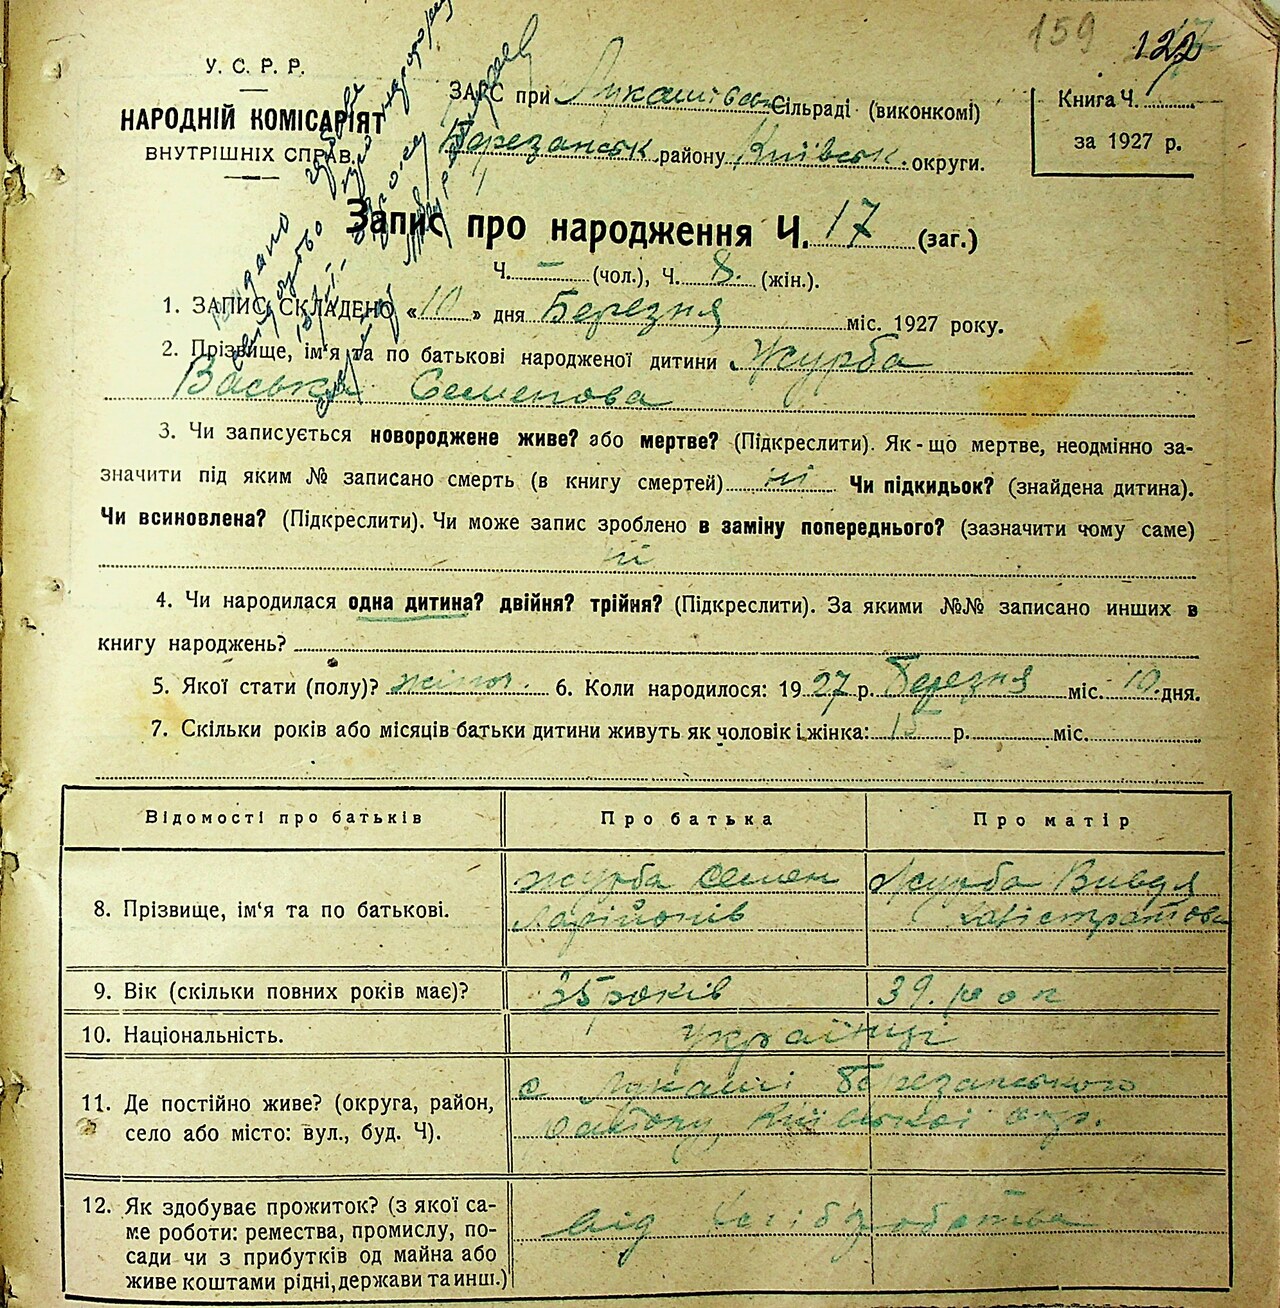 159 122
У. С. Р. Р.
НАРОДНІЙ КОМІСАРІЯТ
ВНУТРІШНІХ СПРАВ.
ЗАГС при Лукашівськ. Сільраді (виконкомі)
Березанськ. району Київськ. округи.
Книга Ч.
за 1927 р.
Запис про народження Ч. 17 (заг.)
Ч. – (чол.), Ч. 8. (жін.).
1. ЗАПИС СКЛАДЕНО «10» дня Березня міс. 1927 року.
2. Прізвище, ім'я та по батькові народженої дитини Журба
Васька Семенова
3. Чи записується новороджене живе? або мертве? (Підкреслити). Як-що мертве, неодмінно за-
значити під яким № записано смерть (в книгу смертей) ні Чи підкидьок? (знайдена дитина).
Чи всиновлена? (Підкреслити). Чи може запис зроблено в заміну попереднього? (зазначити чому саме)
ні
4. Чи народилася одна дитина? двійня? трійня? (Підкреслити). За якими №№ записано инших в
книгу народжень?
5. Якої стати (полу)? жіноч. 6. Коли народилося: 1927 р. Березня міс. 10. дня.
7. Скільки років або місяців батьки дитини живуть як чоловік і жінка: 15 р. міс.
Відомості про батьків Про батька Про матір
8. Прізвище, ім'я та по батькові. Журба Семен Ларійонів Журба Вивдя Калістратова
9. Вік (скільки повних років має)? 35 років 39. рок
10. Національність. Українці
11. Де постійно живе? (округа, район, село або місто: вул., буд. Ч). с Лукаші Березанського
району Київської окр.
12. Як здобуває прожиток? (з якої са-
ме роботи: ремества, промислу, по-
сади чи з прибутків од майна або
живе коштами рідні, держави та инш.) від